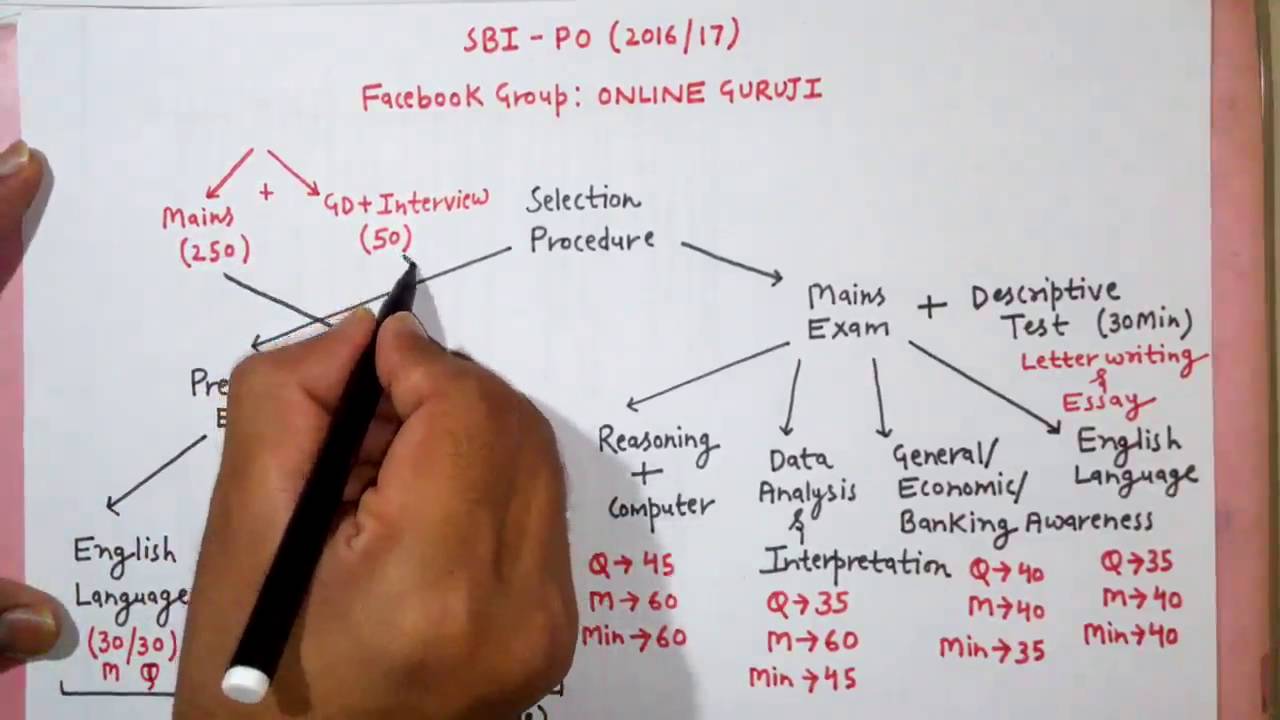 SBI - PO (2016/17)
Facebook Group: ONLINE GURUJI
Mains
(250)
+
GD + Interview
(50)
Selection
Procedure
Mains
Exam
+
Descriptive
Test (30Min)
Letter writing
&
Essay
English
Language
(30/30)
M Q
Reasoning
+
Computer
Q→45
M→60
Min→60
Data
Analysis
&
Interpretation
Q→35
M→60
Min→45
General/
Economic/
Banking Awareness
Q→40
M→40
Min→35
English
Language
Q→35
M→40
Min→40